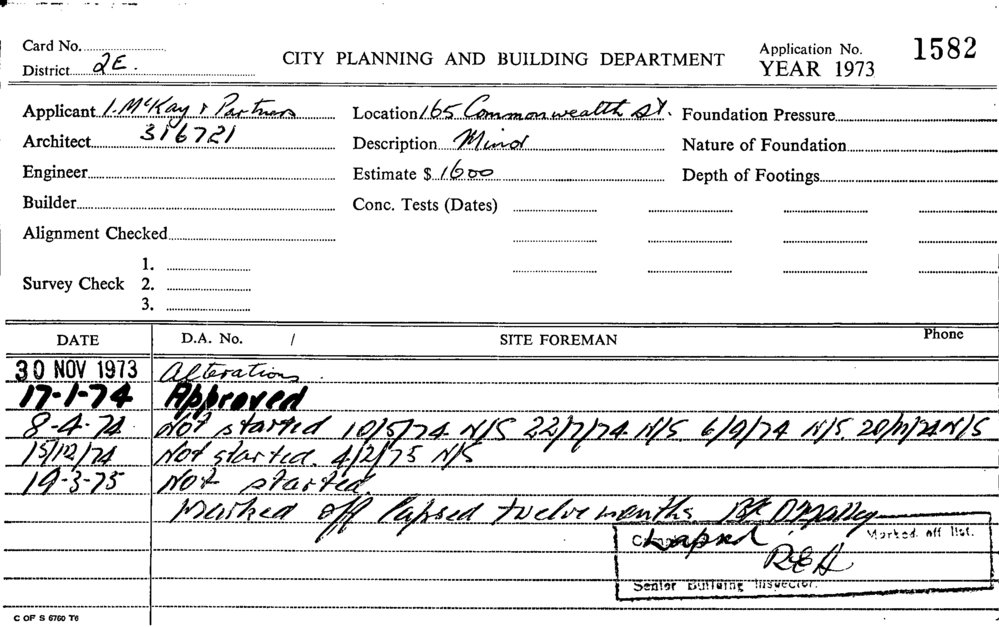 Card No.
District 2E.
CITY PLANNING AND BUILDING DEPARTMENT
Application No. 1582
YEAR 1973
Applicant I. McKay & Partners
Location 165 Commonwealth St.
Foundation Pressure
Architect 316721
Description Minor
Nature of Foundation
Engineer
Estimate $ 1600
Depth of Footings
Builder
Conc. Tests (Dates)
Alignment Checked
1.
Survey Check 2.
3.
DATE D.A. No. / SITE FOREMAN Phone
30 NOV 1973 Alterations.
17-1-74 Approved
8-4-74 Not started 10/5/74 N/S 22/7/74 N/S 6/9/74 N/S. 20/11/74 N/S
15/12/74 Not started. 4/2/75 N/S
19-3-75 Not started
Marked off lapsed twelve months. O'Malley
Lapsed Marked off list.
REH
Senior Building Inspector.
C OF S 6760 T6